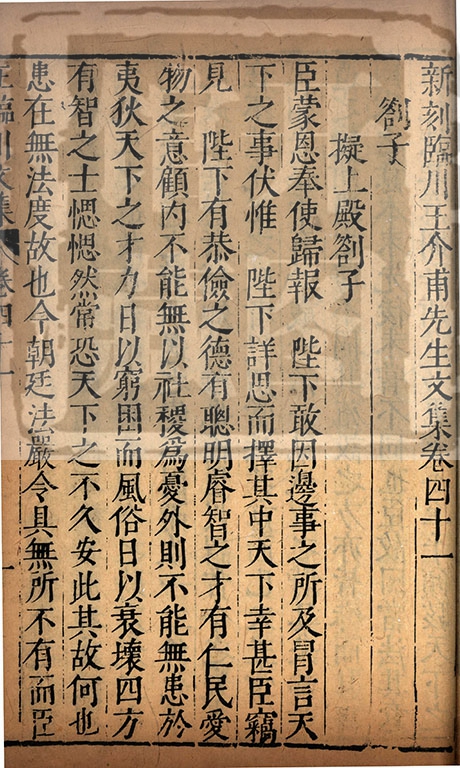 新刻臨川王介甫先生文集卷四十一
劄子
擬上殿劄子
臣蒙恩奉使歸報 陛下敢因邊事之所及冒言天
下之事伏惟 陛下詳思而擇其中天下幸甚臣竊
見 陛下有恭儉之德有聰明睿智之才有仁民愛
物之意顧内不能無以社稷為憂外則不能無患於
夷狄天下之才力日以窮困而風俗日以衰壞四方
有智之士愢愢然常恐天下之不久安此其故何也
患在無法度故也今朝廷法嚴令具無所不有而臣
王臨川文集 卷四十一 一